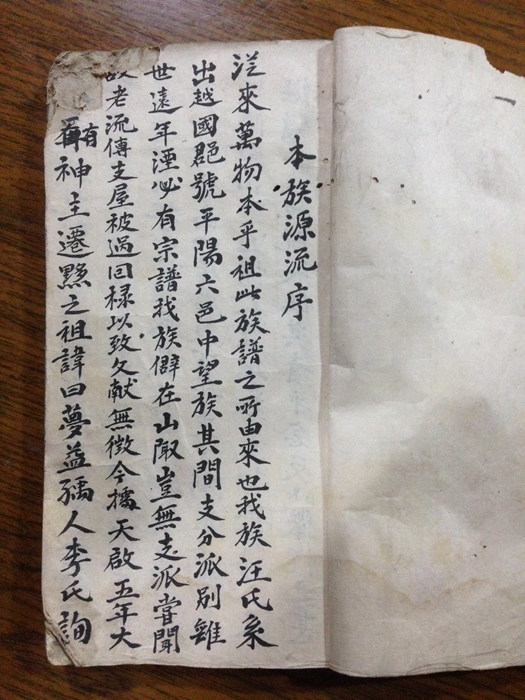 本族源流序
従來萬物本乎祖此族譜之所由來也我族汪氏系
出越國郡號平陽六邑中望族其間支分派別雖
世遠年湮必有宗譜我族僻在山陬豈無支派嘗聞
故老流傳支屋被過回祿以致文献無徵今攜天啟五年大
有神主遷黟之祖諱曰夢益孺人李氏詢